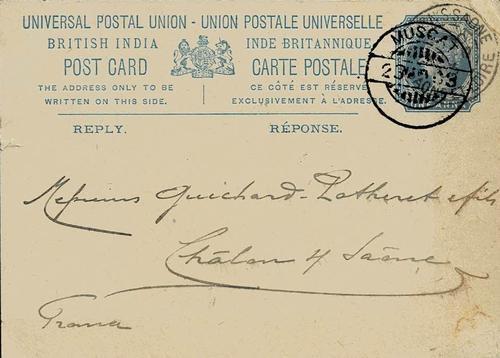 UNIVERSAL POSTAL UNION - UNION POSTALE UNIVERSELLE
BRITISH INDIA INDE BRITANNIQUE
POST CARD CARTE POSTALE
THE ADDRESS ONLY TO BE CE CÔTÉ EST RÉSERVÉ
WRITTEN ON THIS SIDE. EXCLUSIVEMENT À L'ADRESSE.
REPLY. RÉPONSE.
MUSCAT
Messieurs Guichard-Potheret & fils
Châlon s/ Saône
France